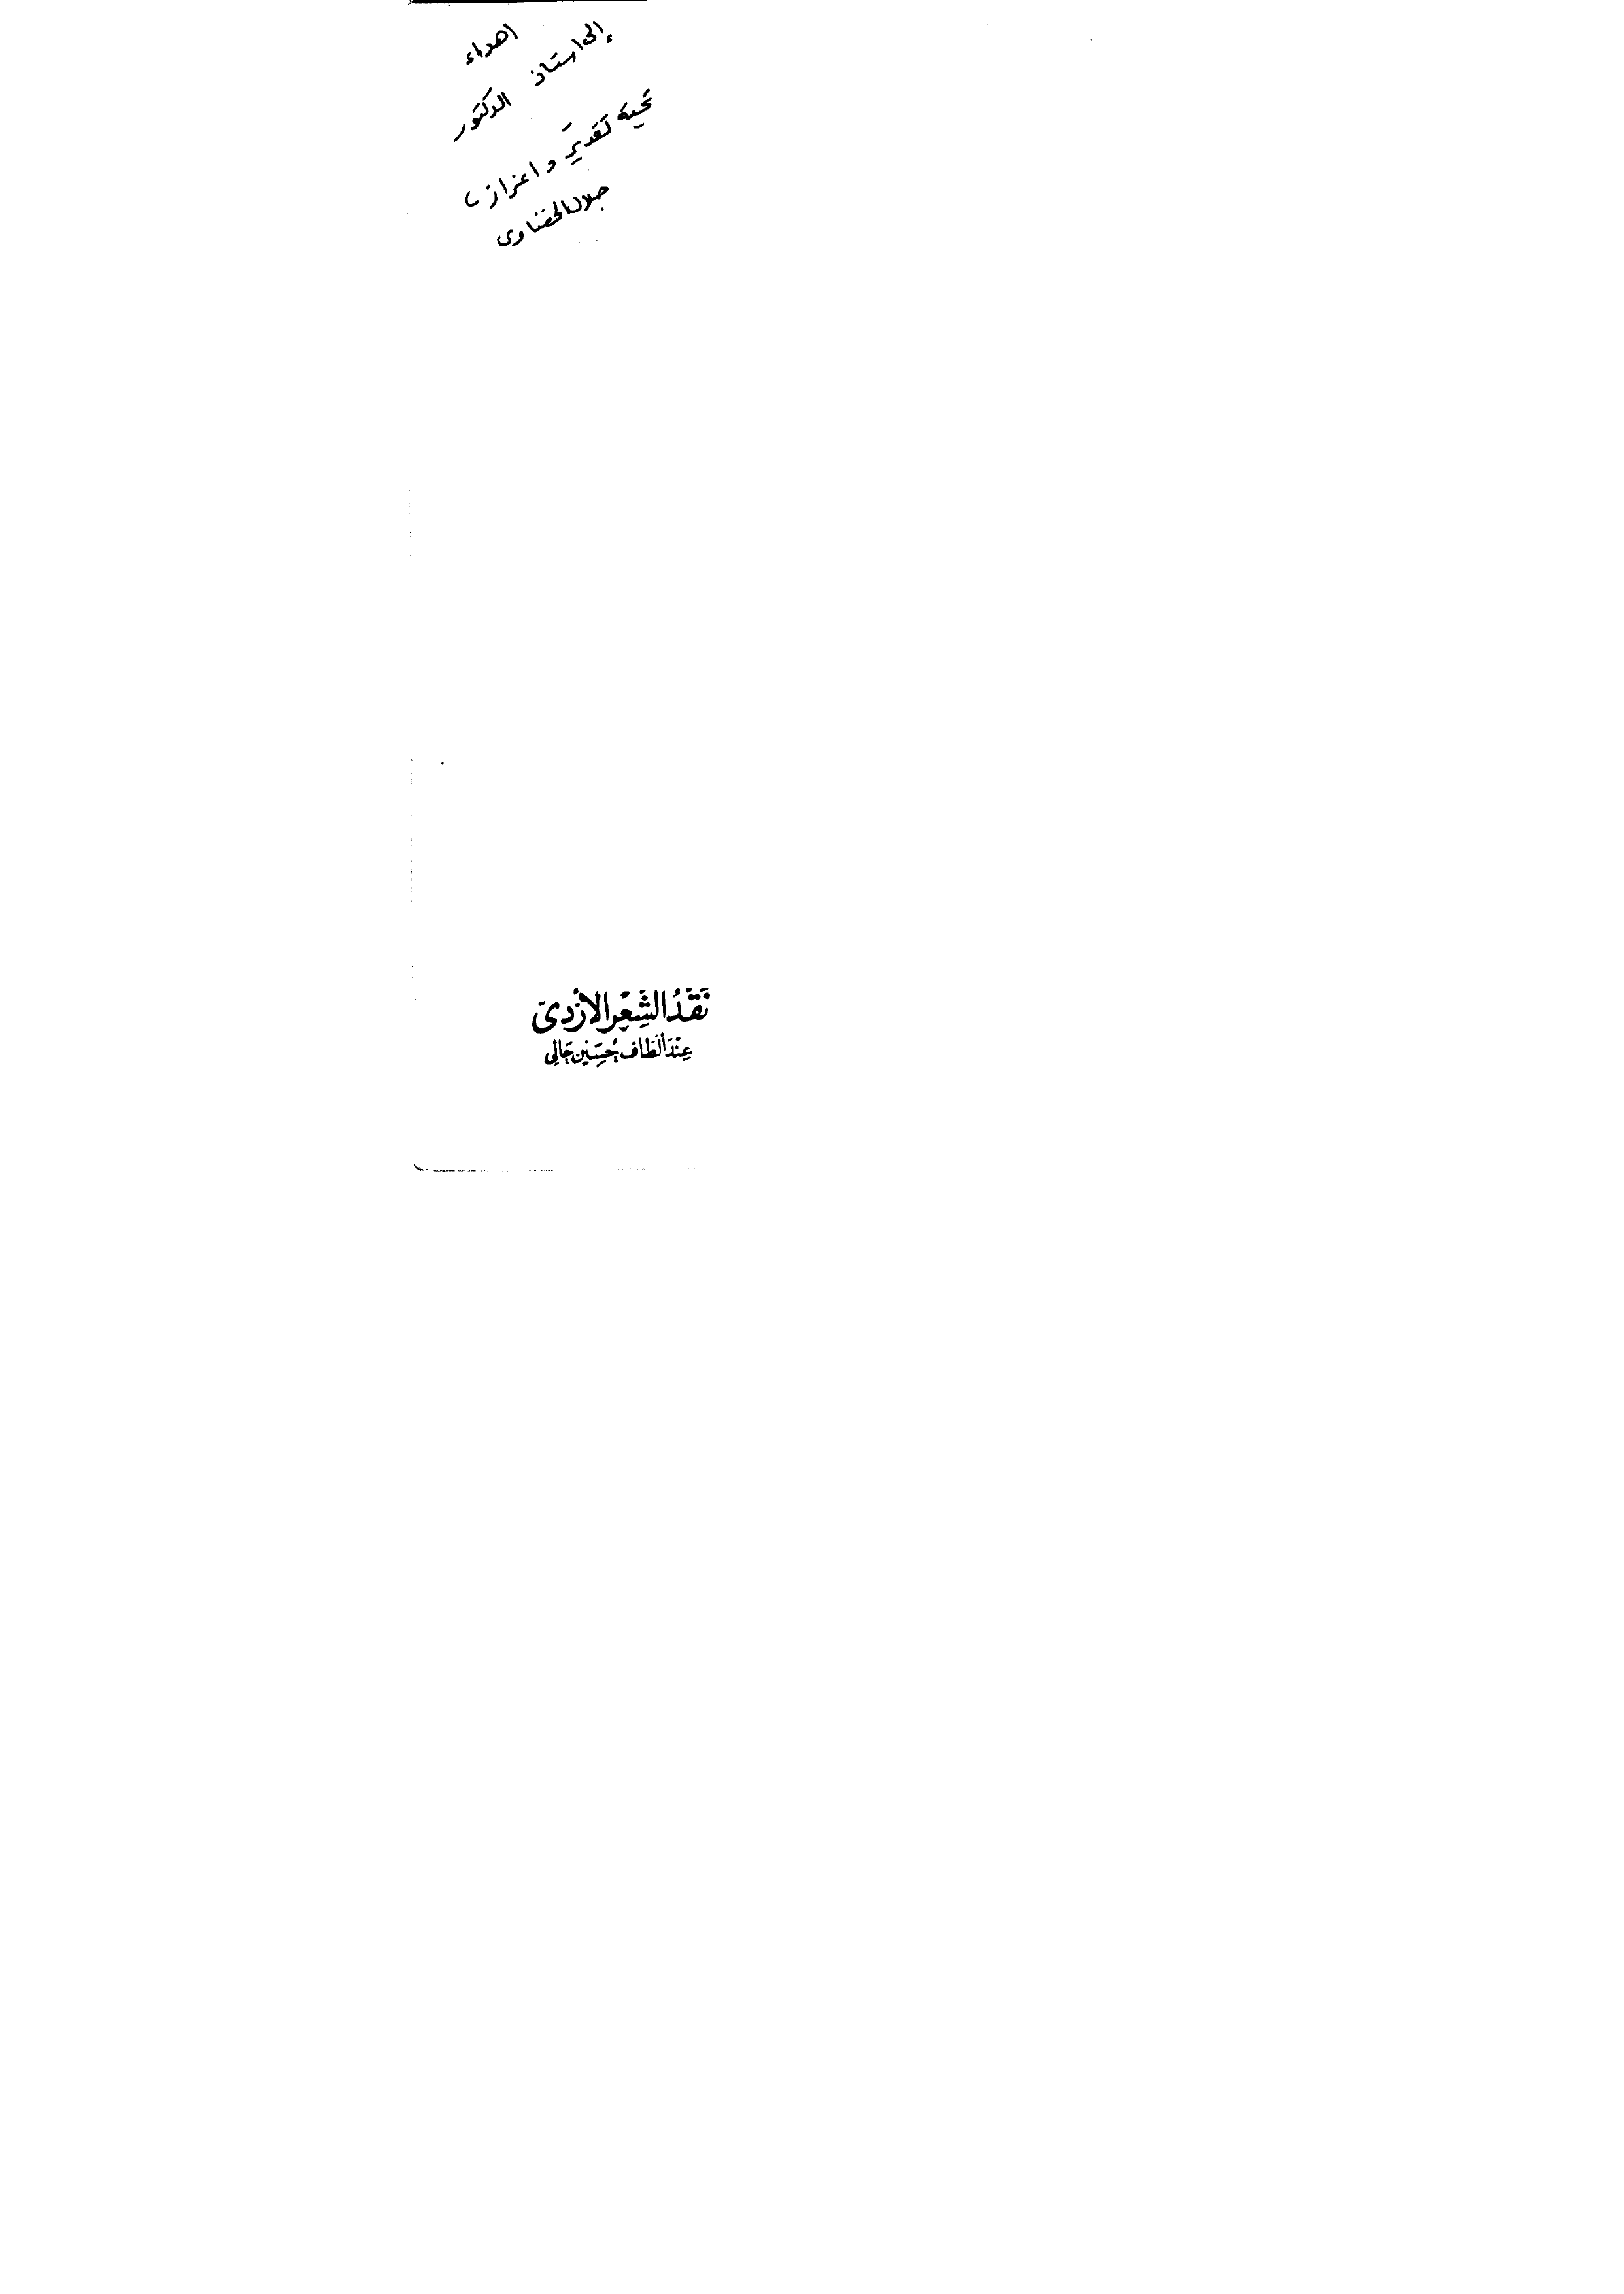 اهداء
إلى استاذ الدكتور
تحية تقدير واعزاز
جلال الحفناوى
نَقْدُ الشِّعْرِ الأُرْدِىّ
عِنْدَ ألْطَاف حُسَيْن حَالِى